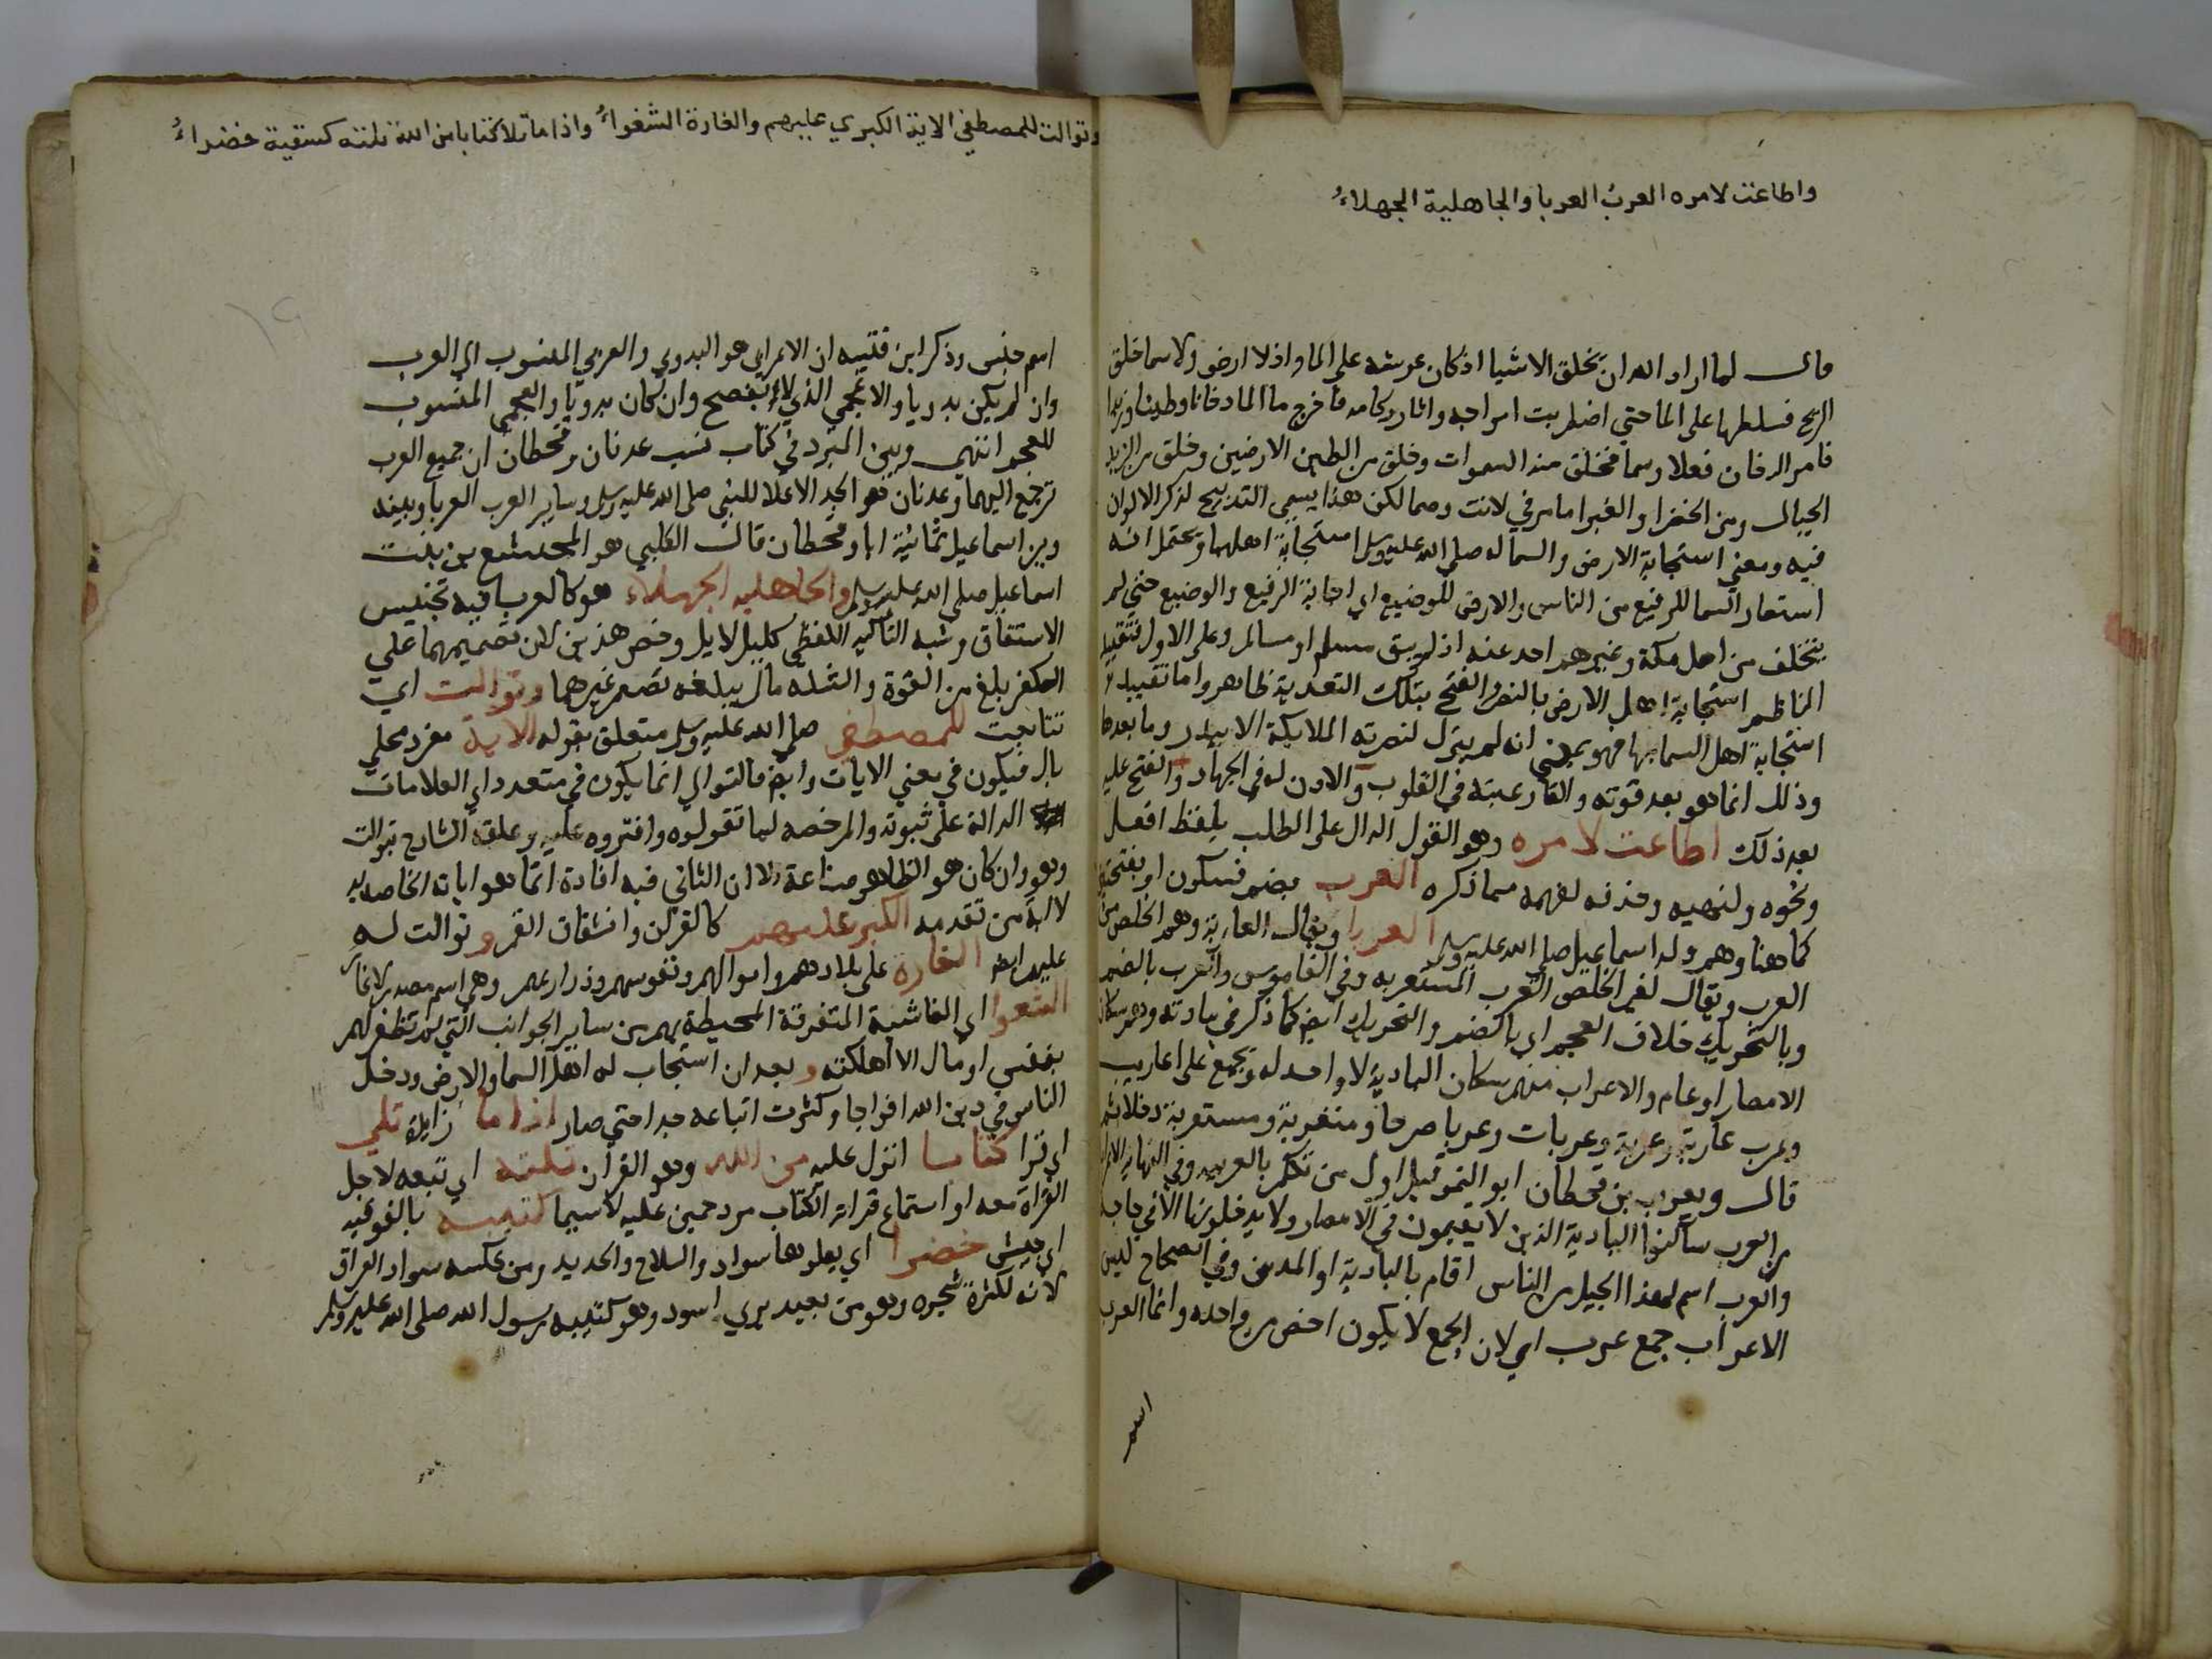 واطاعت لامره العرب العربا والجاهلية الجهلاء
قال لما اراد الله ان يخلق الاشيا اذ كان عرشه على الما واذ لا ارض ولا سما خلق
الريح فسلطها على الما حتي اضطربت امواجه واثار ركامه فاخرج من الما دخانا وطينا وزبدا
فامر الدخان فعلا وسما فخلق منه السموات وخلق من الطين الارضين وخلق من الزبد
الجبال ومن الخضرا والغبرا ما مر في لانت وصما لكن هذا يسمي التدبيج لذكر الالوان
فيه ومعني استجابة الارض والسما له صلى الله عليه وسلم استجابة اهلهما ويحتمل انه
استعار السما للرفيع من الناس والارض للوضيع اي اجابة الرفيع والوضيع حتي لم
يتخلف من اهل مكة وغيرهم احد عنه اذ لم يبق مسلم او مسالم وعلى الاول فتقييد
الناظم استجابة اهل الارض بالنصر والفتح بتلك التعدية ظاهر واما تقييد
استجابة اهل السما بها فهو بمعني انه لم ينزل لنصرته الملايكة الا ببدر وما بعدها
وذلك انما هو بعد قوته والقا رعبته في القلوب والاذن له في الجهاد والفتح عليه
بعد ذلك اطاعت لامره وهو القول الدال على الطلب بلفظ افعل
ونحوه ولنهيه وحذفه لفهمه مما ذكره العرب بضم فسكون او بفتحتين
كما هنا وهم ولد اسماعيل صلى الله عليه وسلم العربا ويقال العاربة وهم الخلص من
العرب ويقال لغير الخلص العرب المستعربه وفي القاموس والعرب بالضم
وبالتحريك خلاف العجم اي بالضم والتحريك ايضا كما ذكر في مادته وهم سكان
الامصار او عام والاعراب منهم سكان البادية لا واحد له ويجمع على اعاريب
وعرب عاربة وعربة وعربات وعربا صرحا ومتعربة ومستعربة دخلا ثم
قال ويعرب بن قحطان ابو اليمن قيل اول من تكلم بالعربيه وفي النهاية الاعراب
من العرب ساكنوا البادية الذين لا يقيمون في الامصار ولا يدخلونها الا في حاجة
والعرب اسم لهذا الجيل من الناس اقام بالبادية او المدن وفي الصحاح ليس
الاعراب جمع عرب اي لان الجمع لا يكون اخص من واحده وانما العرب
اسم
وتوالت للمصطفي الاية الكبري عليهم والغارة الشعواء واذا ما تلا كتابا من الله تلته كتيبة خضراء
اسم جنس وذكر ابن قتيبه ان الاعرابي هو البدوي والعربي المنسوب الي العرب
وان لم يكن بدويا والاعجمي الذي لا يفصح وان كان بدويا والعجمي المنسوب
للعجم انتهي وبين المبرد في كتاب نسب عدنان وقحطان ان جميع العرب
ترجع اليهما وعدنان هو الجد الاعلا للنبي صلى الله عليه وسلم وساير العرب العربا وبينه
وبين اسماعيل ثمانية ابا وقحطان قال الكلبي هو الهميسع بن بنت
اسماعيل صلى الله عليه وسلم والجاهليه الجهلاء هو كالعرب فيه تجنيس
الاشتقاق وشبه التاكيد اللفظي كليل لايل وخص هذين لان تصميمهما علي
الكفر بلغ من القوة والشده مالم يبلغه تصميم غيرهما وتوالت اي
تتابعت للمصطفي صلى الله عليه وسلم متعلق بقوله الاية مفرد محلي
بال فيكون في معني الايات وايضا فالتوالي انما يكون في متعدد اي العلامات
الدالة على ثبوته والمرخصه لما تقولوه وافتروه عليه وعلقه الشارح بتوالت
وهو وان كان هو الظاهر صناعة الا ان الثاني فيه افادة انما هو اياته الخاصه به
لا اية من تقدمه الكبر عليهم كالقران وانشقاق القمر و توالت له
عليهم ايضا الغارة على بلادهم واموالهم ونفوسهم وذراريهم وهي اسم مصدر لاغار
الشعوا اي الفاشية المتفرقة المحيطة بهم من ساير الجوانب التي لم تظفر لهم
بنفس او مال الا اهلكته و بعد ان استجاب له اهل السما والارض ودخل
الناس في دين الله افواجا وكثرت اتباعه جدا حتي صار اذا ما زايدة تلي
اي قرا كتابا انزل عليه من الله وهو القران تلته اي تبعه لاجل
القراة معه او استماع قراة الكتاب مزدحمين عليه لاسيما كتيبة بالفوقيه
اي جيش خضرا اي يعلوها سواد والسلاح والحديد ومن عكسه سواد العراق
لانه لكثرة شجره وهو من بعيد يري اسود وهو كتيبه رسول الله صلى الله عليه وسلم